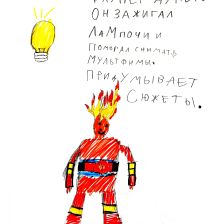 Он зажигал
лампочи и
помогал снимать
мультфимы.
Придумывает
сюжеты.